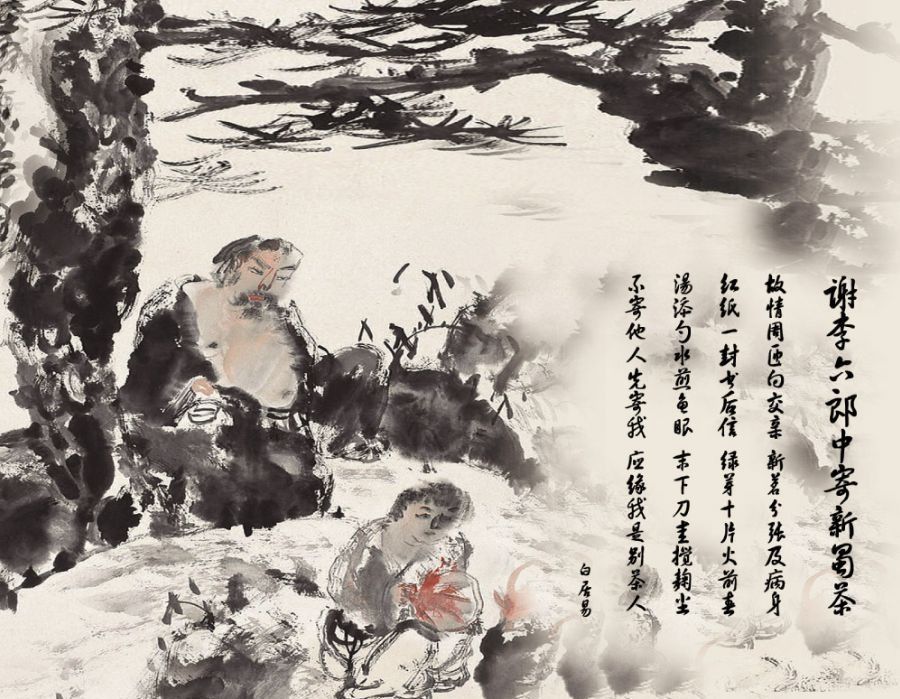 谢李六郎中寄新蜀茶
故情周匝向交亲 新茗分张及病身
红纸一封书后信 绿芽十片火前春
汤添勺水煎鱼眼 末下刀圭搅麹尘
不寄他人先寄我 应缘我是别茶人
白居易